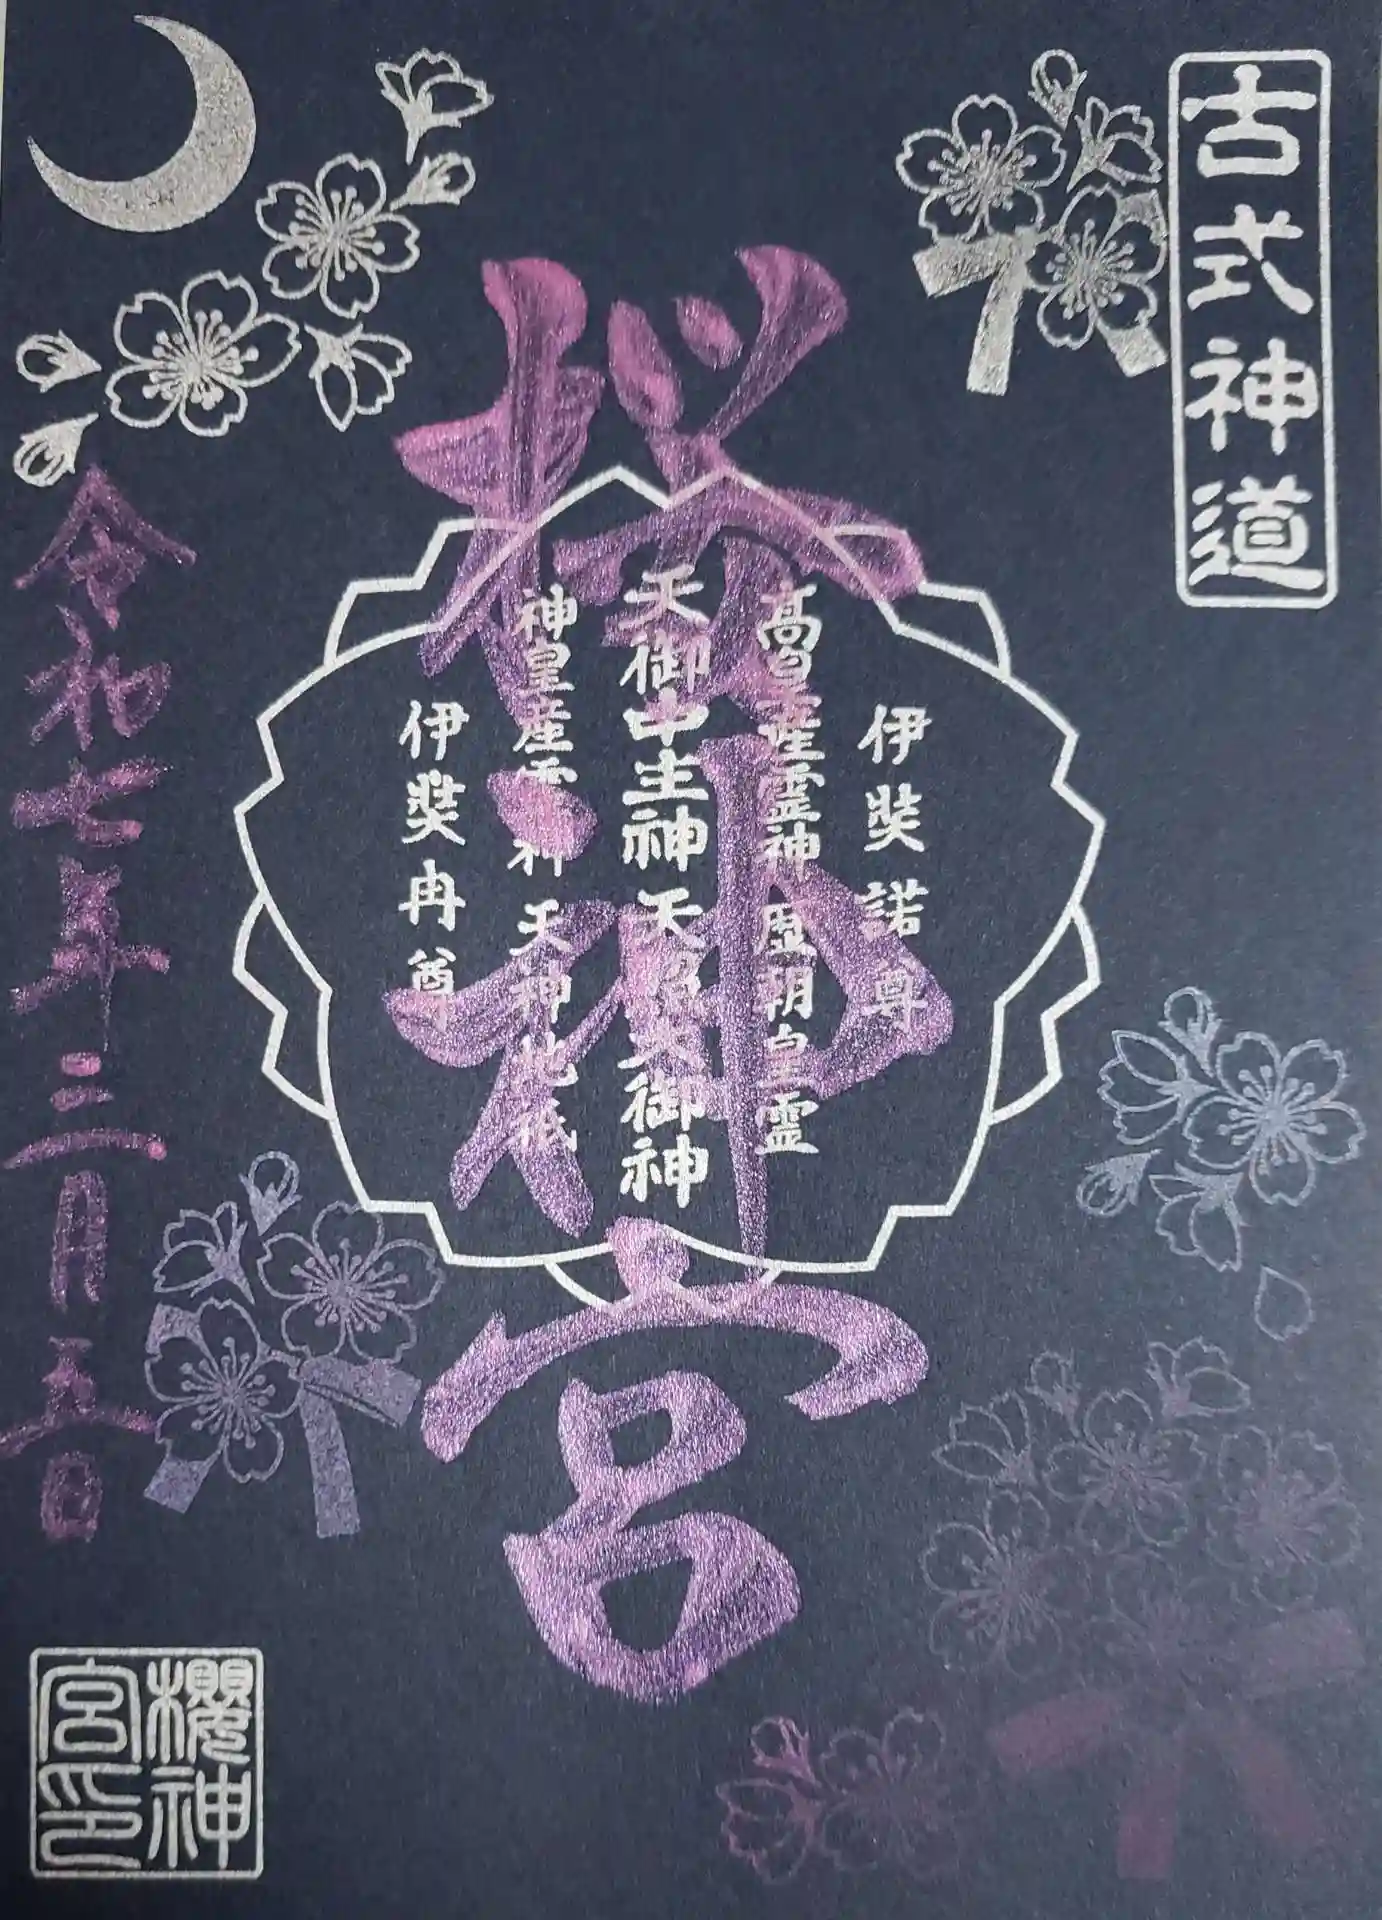 古式神道
桜神宮
伊奘諾尊
高皇産霊神 歴朝皇霊
天御中主神 天照大御神
神皇産霊神 天神地祇
伊奘冉尊
令和七年三月五日
櫻神
宮印